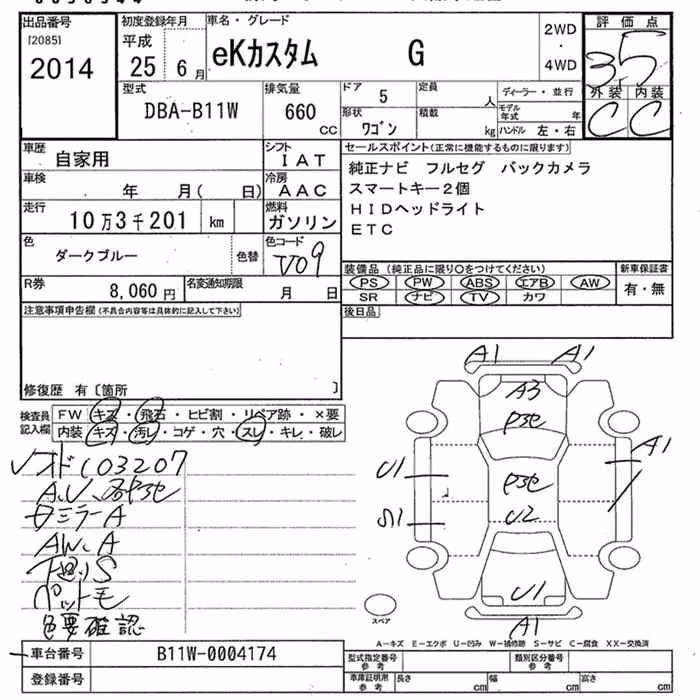 出品番号 初度登録年月 車名・グレード 評価点
[2085]
2014 平成 25 6月 eKカスタム G 2WD ・ 4WD 3.5
型式 排気量 ドア 定員 ディーラー・並行 外装 内装
DBA-B11W 660 CC 5 人 モデル年式 年 C C
形状 積載
ワゴン kg ハンドル 左・右
車歴 自家用 シフト IAT セールスポイント(正常に機能するものに限ります)
車検 年 月( 日) 冷房 AAC 純正ナビ フルセグ バックカメラ
スマートキー2個
走行 10万3千201 km 燃料 ガソリン HIDヘッドライト
ETC
色 ダークブルー 色替 色コード V09
装備品(純正品に限り○をつけてください) 新車保証書
R券 8,060円 名変通知期限 月 日 PS PW ABS エアB AW 有・無
SR ナビ TV カワ
注意事項申告欄(不具合内容等は具体的に記入して下さい) 後日品
修復歴 有〔箇所 〕
検査員記入欄 FW キズ・飛石・ヒビ割・リペア跡・×要
内装 キズ・汚レ・コゲ・穴・スレ・キレ・破レ
A1 A1
A3
Pたせ
U1 A1
Pたせ
S1 U2
U1
A1
03207
ミラーA
AW、A
下廻りS
ペット毛
色要確認
スペア
A—キズ E—エクボ U—凹み W—補修跡 S—サビ C—腐食 XX—交換済
車台番号 B11W-0004174 型式指定番号 参考 類別区分番号 参考
登録番号 車庫証明用 参考 長さ cm 幅 cm 高さ cm